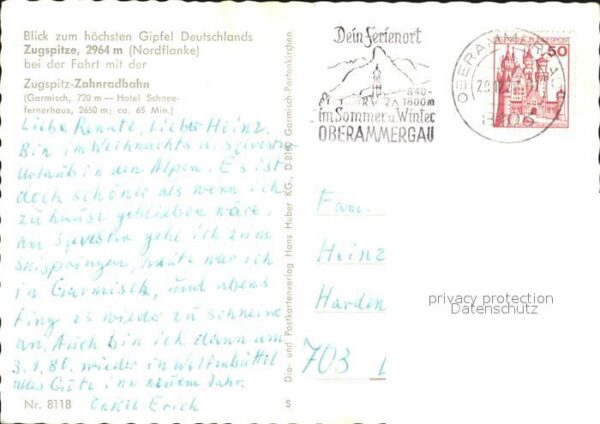 Blick zum höchsten Gipfel Deutschlands
Zugspitze, 2964 m (Nordflanke)
bei der Fahrt mit der
Zugspitz-Zahnradbahn
(Garmisch, 720 m — Hotel Schnee-
fernerhaus, 2650 m; ca. 65 Min.)
Liebe Renate, Lieber Heinz.
Bin im Weihnachts u. Sylvester
Urlaub in den Alpen. Es ist
doch schöner als wenn ich
zuhause geblieben wäre.
am Sylvester gehe ich zum
skispringen, heute war ich
in Garmisch, und abens
fing es wieder zu schneien
an. Auch bin ich dann am
3.1.80. wieder in Wolfenbüttel
alles Gute ins neuem Jahr.
Onkel Erich
Nr. 8118
S
Dia- und Postkartenverlag Hans Huber KG., D-8100 Garmisch-Partenkirchen
Dein Ferienort
840-
1800m
im Sommer u Winter
OBERAMMERGAU
OBERAMMERGAU
8103
50
Fam.
Heinz
Harden
703
privacy protection
Datenschutz